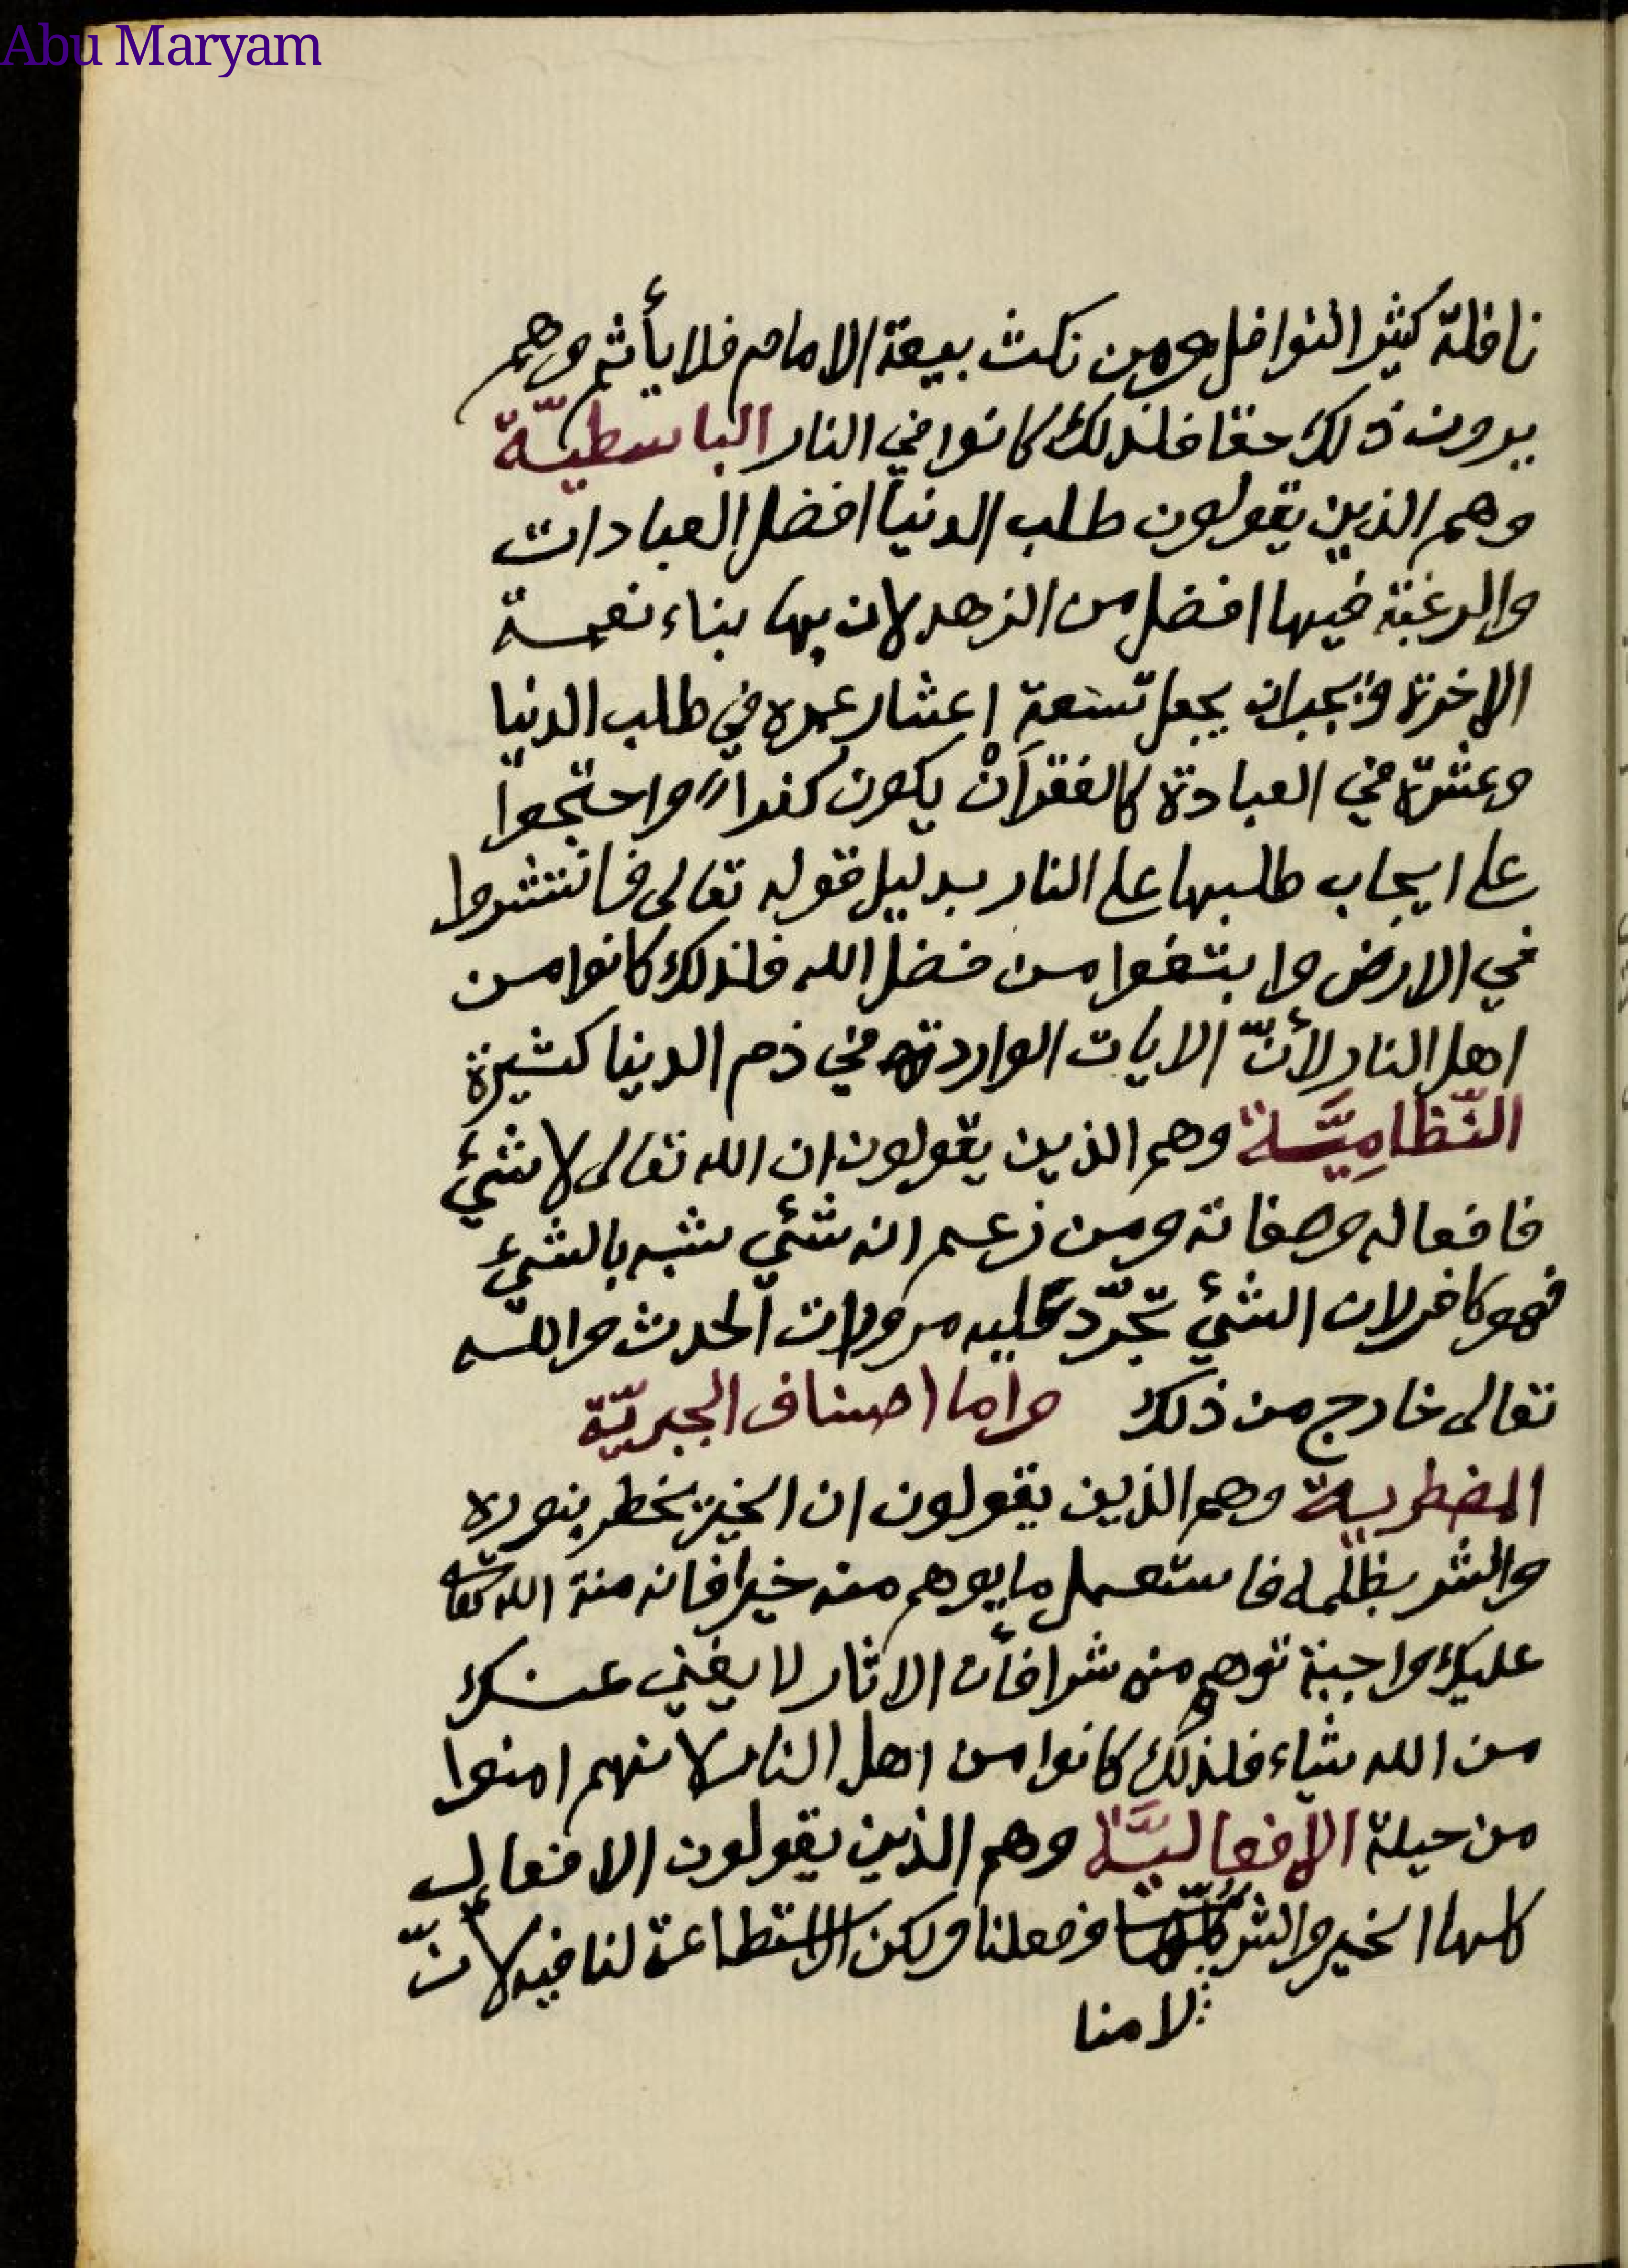 Abu Maryam
نافلة كثير النوافل ومن نكث بيعة الامام فلا يأثم وهم
يرون ذلك حقا فلذلك كانوا في النار الباسطيّة
وهم الذين يقولون طلب الدنيا افضل العبادات
والرغبة فيها افضل من الزهد لان بها بناء نعمة
الاخرة ويجب ان يجعل تسعة اعشار عمره في طلب الدنيا
وعشرة في العبادة كالفقر اَنْ يكون كفرا واحتجوا
على ايجاب طلبها على النار بدليل قوله تعالى فانتشروا
في الارض وابتغوا من فضل الله فلذلك كانوا من
اهل النار لأنّ الايات الواردة في ذم الدينا كثيرة
النّظامِيَّة وهم الذين يقولون ان الله تعالى لا شئي
فافعاله وصفاته ومن زعم انه شئي شبه بالشيء
فهو كافر لان الشئي تجرّد عليه الحدث والله
تعالى خارج من ذلك واما اصناف الجبريّة
المضطرية وهم الذين يقولون ان الخير يخطر بنوره
والشر بظلمه فاستعمل ما يوهم منه خيرا فانه منة الله تعالى
عليك واجبة توهم منه شرا فأن الاثار لا يغني عنك
من الله شياء فلذلك كانوا من اهل النار لانهم امنوا
من حيلة الافعاليَّة وهم الذين يقولون الافعال
كلها الخير والشر وفعلنا ولكن الاستطاعة لنا فيه لأنّ
لا منا